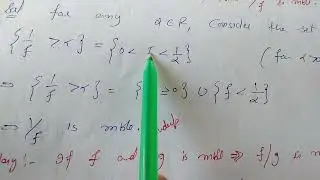 Sol for any α ∈ R, Consider the set
{1/f > α} = {0 < f < 1/α}
⇒ {1/f > α} = { > 0} ∪ {f < 1/α}
⇒ 1/f is mble.
:- If f and is mble ⇒ f/g is m